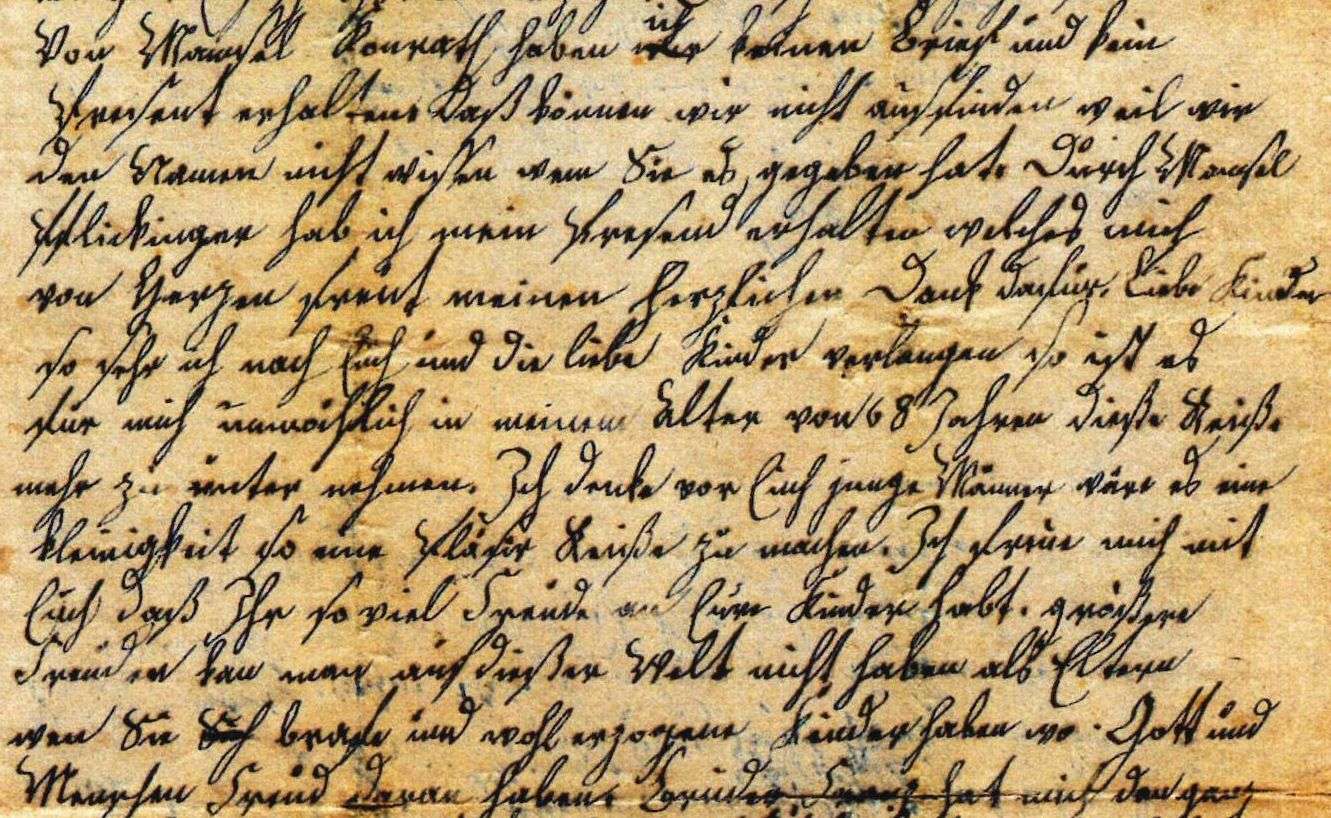 Von Mamsel Konrath haben wir keinen Brief und kein
Present erhalten Daß können wir nicht ausfinden weil wir
den Namen nicht wissen wem Sie es gegeben hat. Durch Mamsel
Flickinger hab ich mein Present erhalten welches mich
von Herzen freut meinen herzlichen Dank dafür. Liebe Kinder
so sehr ich nach Euch und die liebe Kinder verlangen so ist es
für mich unmöchlich in meinem Alter von 68 Jahren dieße Reiße
mehr zu unter nehmen. Ich denke vor Euch junge Männer wäre es eine
kleinigkeit so eine Pläsir Reiße zu machen. Ich freue mich mit
Euch daß Ihr so viel Freude an Eure Kinder habt. größere
Freuden kan man auf dießer Welt nicht haben als Eltern
wen Sie brafe und wohl erzogene Kinder haben wo Gott und
Menschen Freud daran haben. Bruder hat mich den ganz